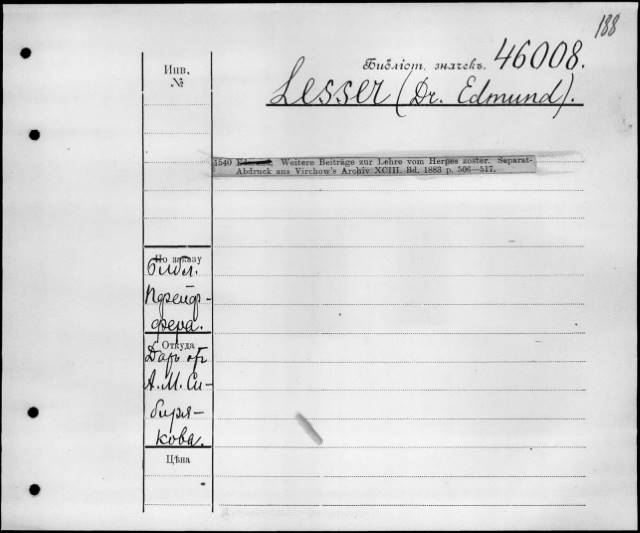 188
Библіот. значекъ. 46008.
Lesser (Dr. Edmund).
Инв.
№
1540 Weitere Beiträge zur Lehre vom Herpes zoster. Separat-
Abdruck aus Virchow's Archiv XCIII. Bd. 1883 p. 506—517.
По заказу
Библ.
Пфейф-
фера.
Откуда
Даръ отъ
А. М. Си-
биря-
кова.
Цѣна